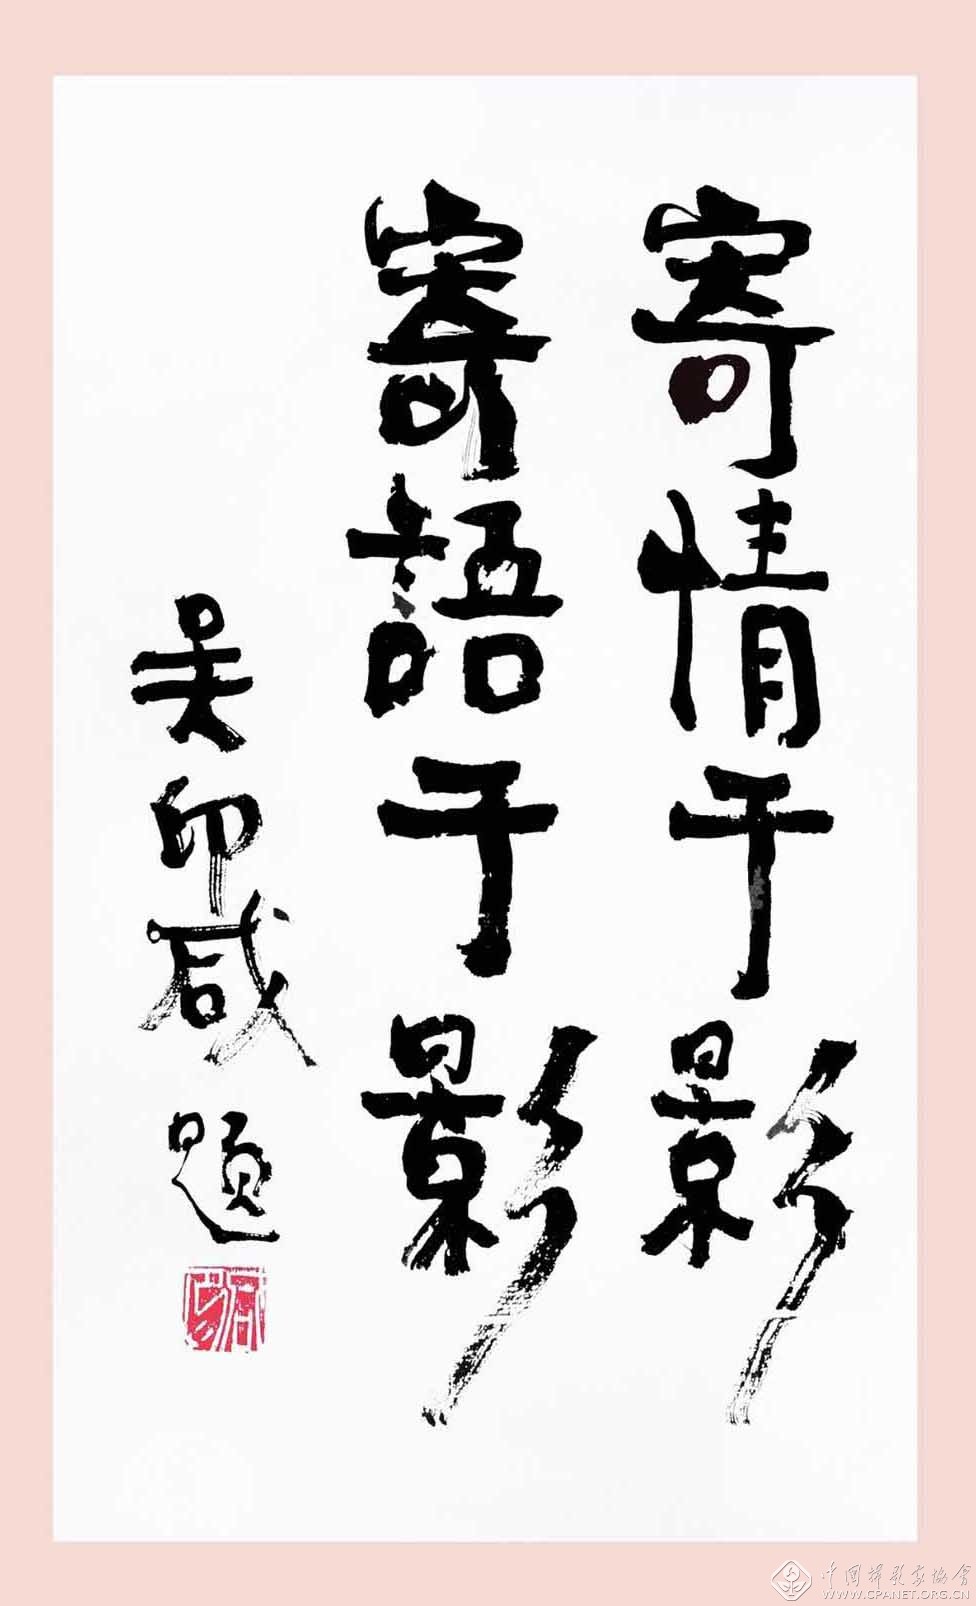 寄情于影
寄語于影
吴印咸 题
印咸
中国摄影家协会
WWW.CPANET.ORG.CN